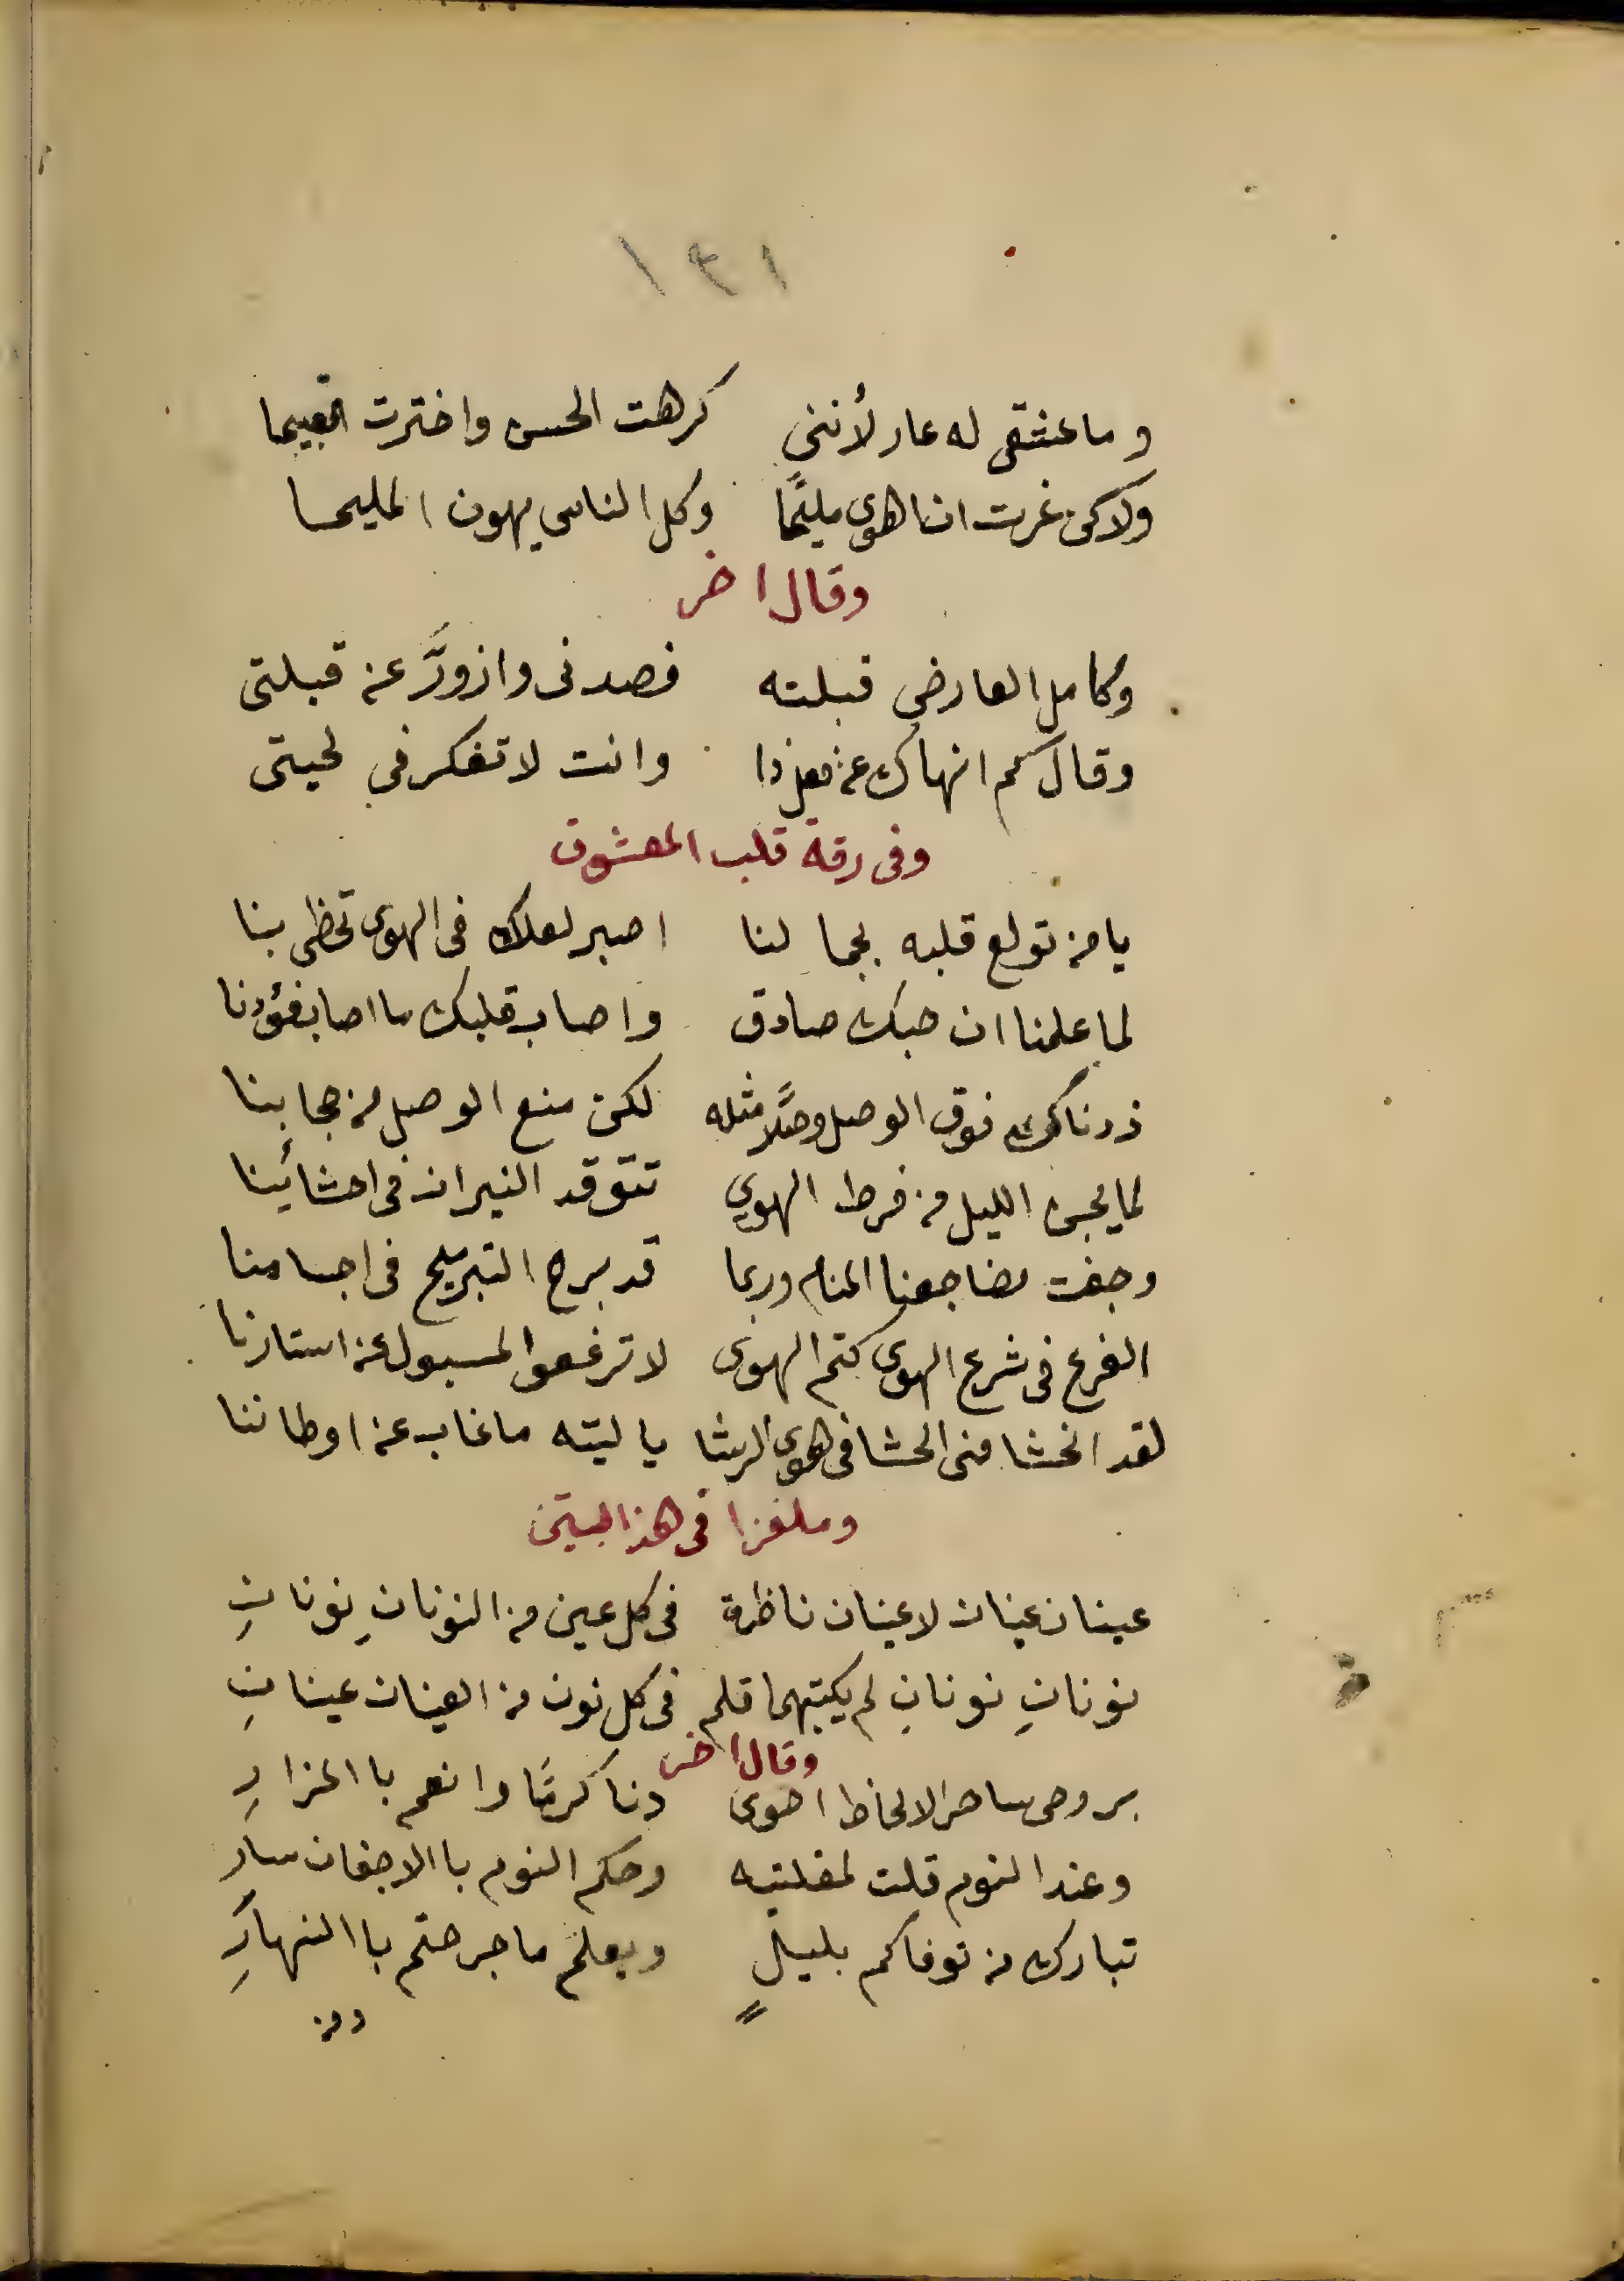 ١٣١
وما عشقى له عار لأننى كرهت الحسن واخترت القبيحا
ولاكن غرت ان اهوى مليحًا وكل الناس يهون المليحا
وقال اخر
وكامل العارض قبلته فصدنى وازورَّ عن قبلتى
وقال كم انهاك عن فعل ذا وانت لا تفكر في لحيتى
وفى رقة قلب المعشوق
يا من تولع قلبه بجمالنا اصبر لعلك فى الهوى تحظى بنا
لما علمنا ان حبك صادق واصاب قلبك ما اصاب فؤدنا
زدناك فوق الوصل وصلًا مثله لكن منع الوصل من حجابنا
لما يجىء الليل من فرط الهوي تتوقد النيران فى احشائنا
وجفت مضاجعنا المنام وربما قد برح التبريح فى اجسامنا
الفرع فى شرع الهوى كتم الهوى لا ترفعوا المسبول عن استارنا
لقد انحشا منى الحشا فى هوى الرشا يا ليته ما غاب عن اوطاننا
وملغزا فى هذا البيتين
عينان عينان لا عينان ناظرة فى كل عين من النونانِ نونانِ
نونانِ نونانِ لم يكتبهما قلم فى كل نون من العينان عينانِ
وقال اخر
بروحى ساحر الالحاظ احوى دنا كرمًا وانعم با المزارِ
وعند النوم قلت لمقلتيه وحكم النوم با الاجفان سارِ
تبارك من توفاكم بليلٍ ويعلم ما جرحتم با النهارِ
ومن